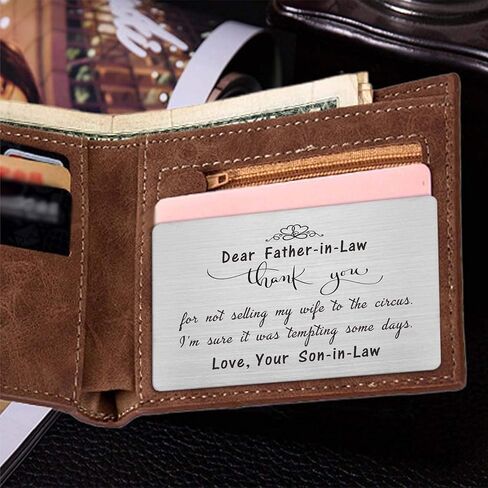 Dear Father-in-Law
thank you
for not selling my wife to the circus.
I'm sure it was tempting some days.
Love, Your Son-in-Law